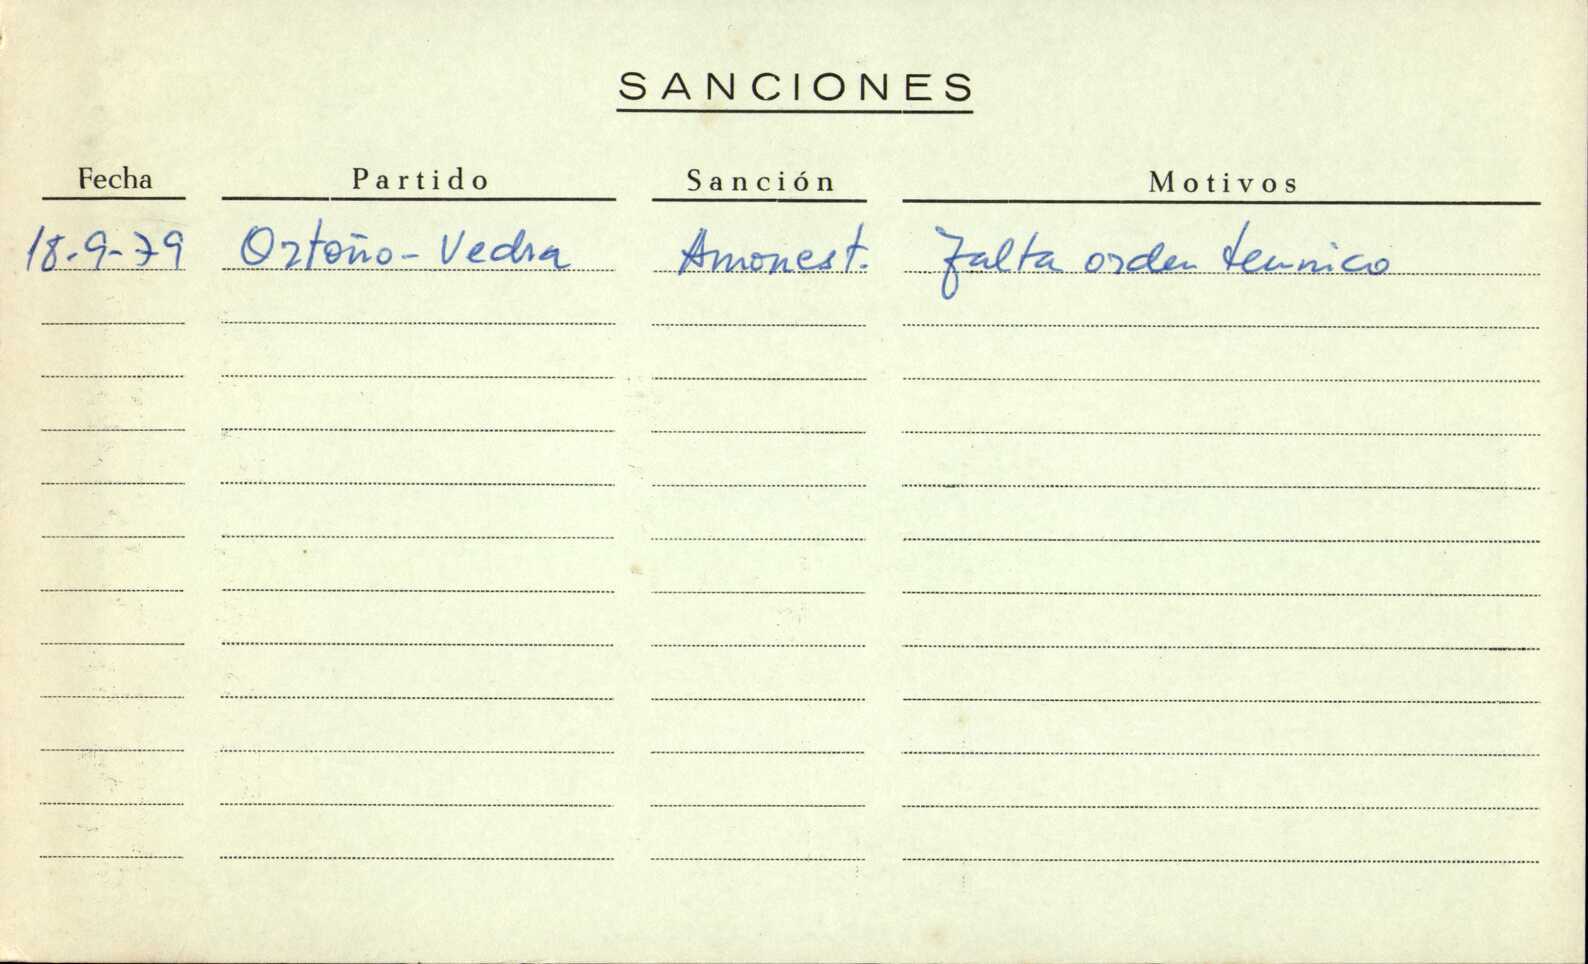 SANCIONES
Fecha Partido Sanción Motivos
18-9-79 Ortoño - Vedra Amonest. Falta orden tecnnico